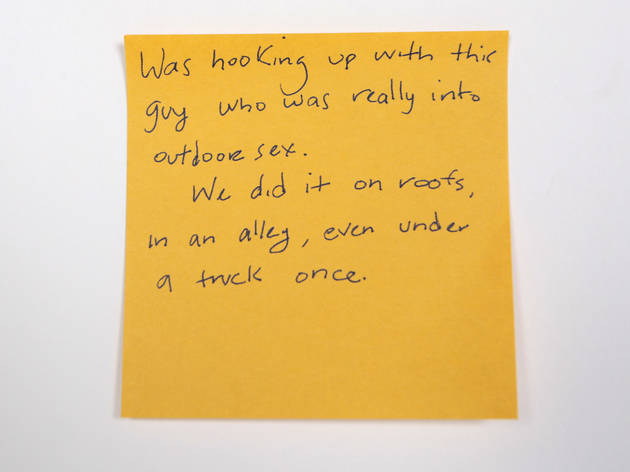 Was hooking up with this
guy who was really into
outdoor sex.
We did it on roofs,
in an alley, even under
a truck once.